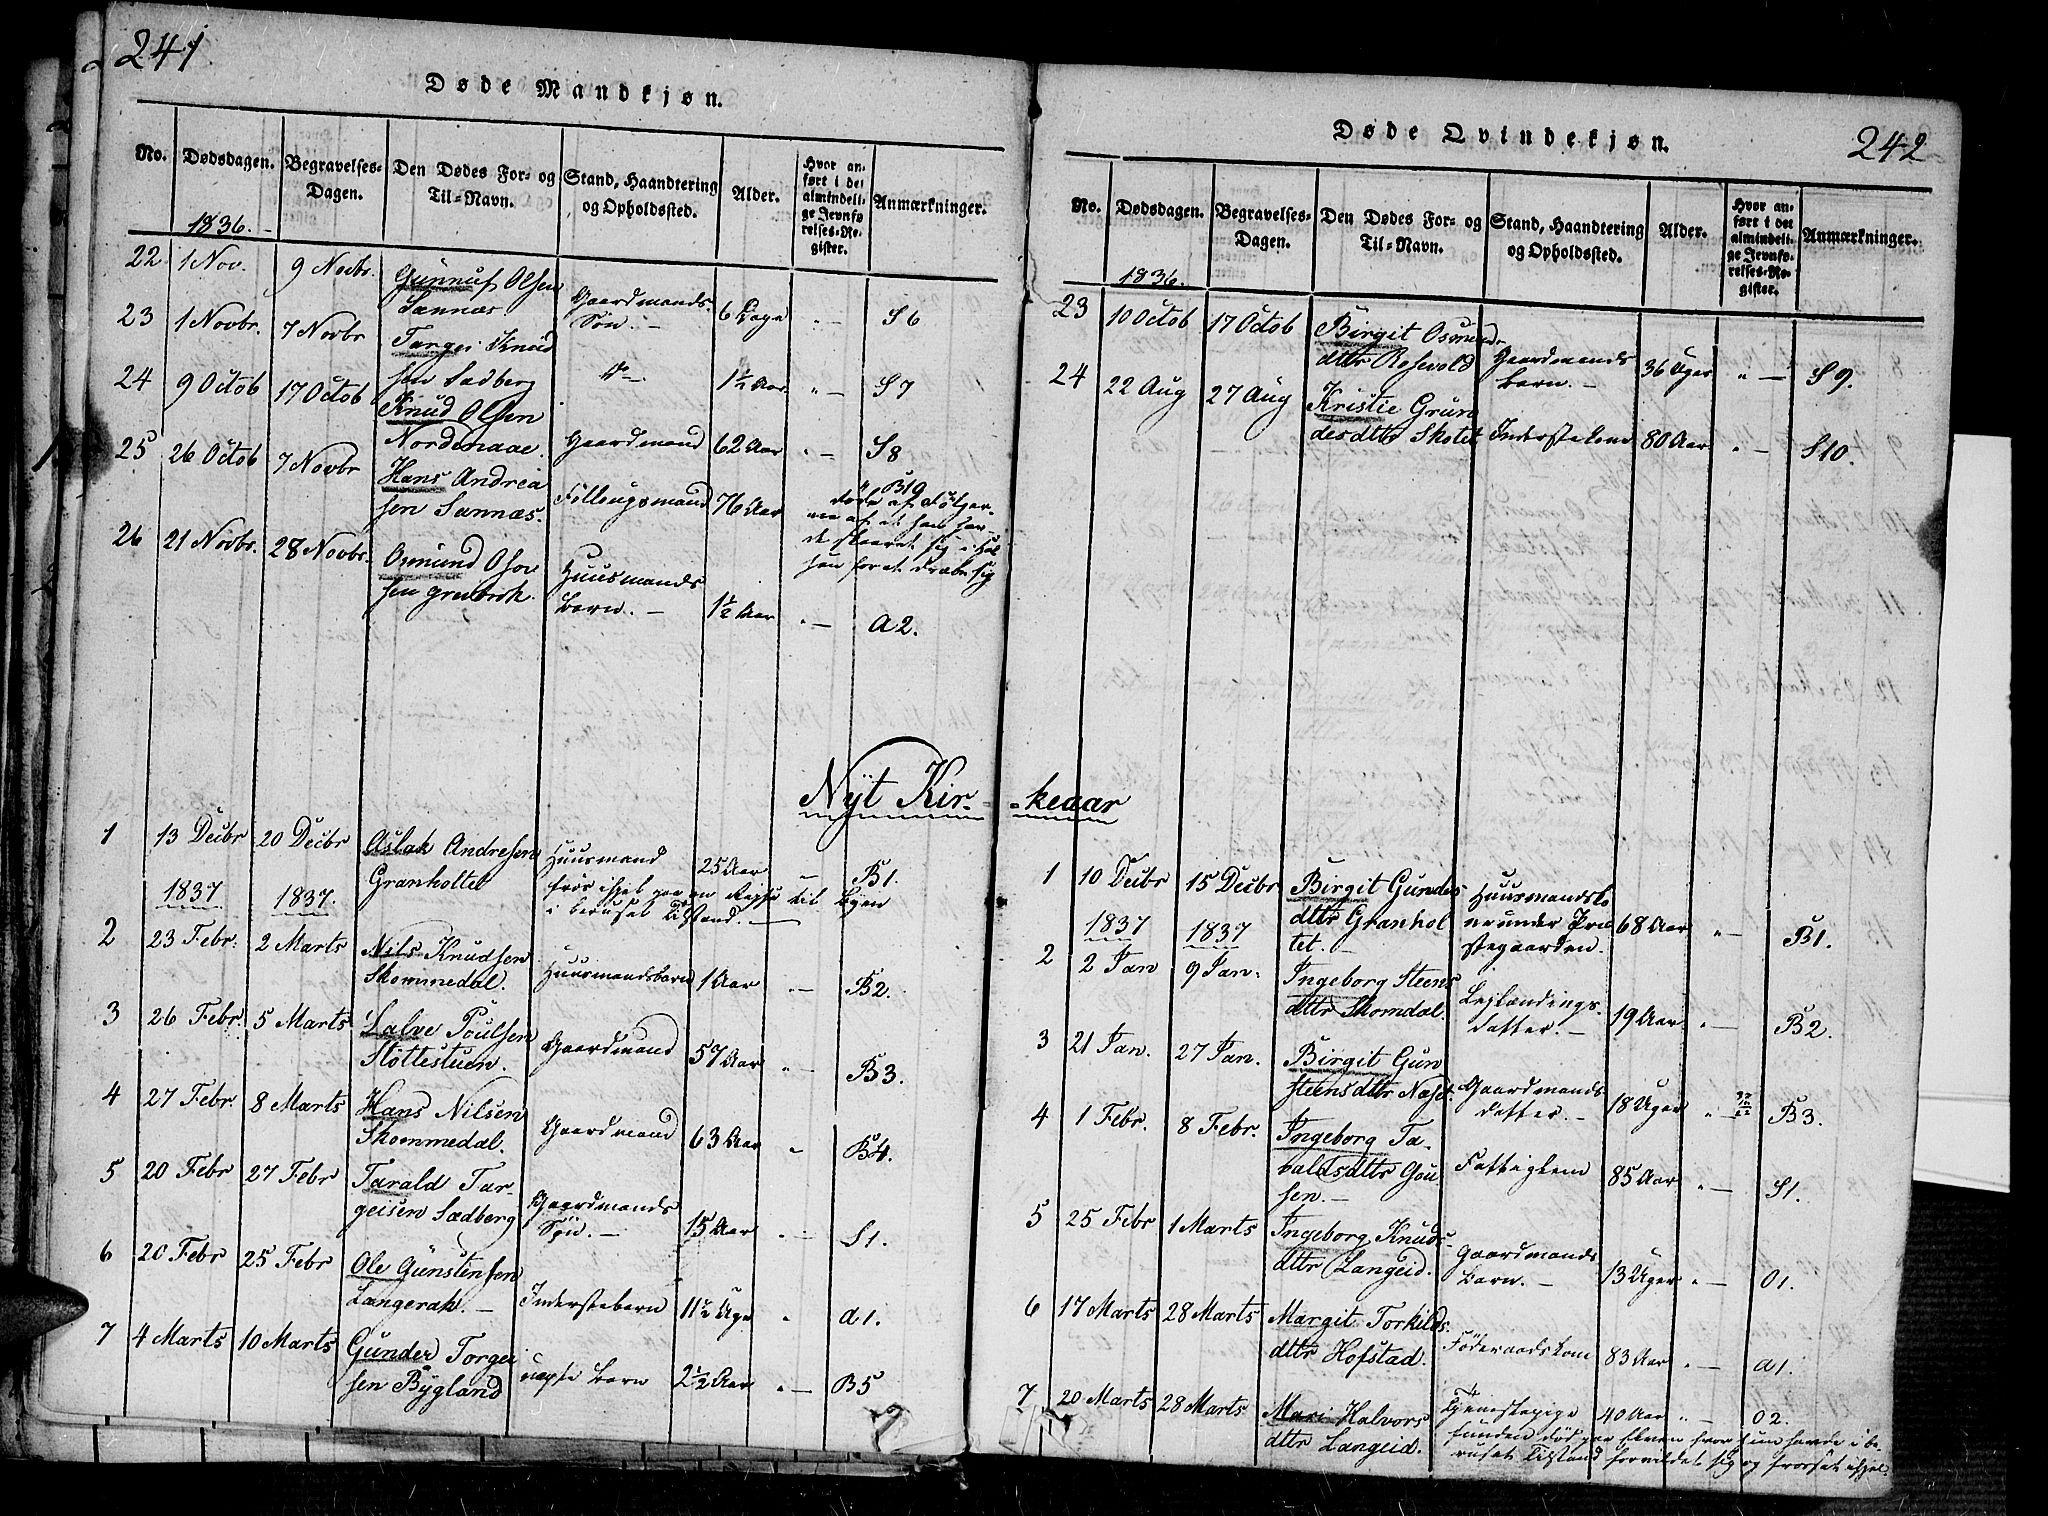 241
Døde Mandkjøn.
No. Dødsdagen. Begravelses-Dagen. Den Dødes For- og Til-Navn. Stand, Haandtering og Opholdssted. Alder. Hvor anført i det almindelige Jevnførelses-Register. Anmærkninger.
1836.
22 1 Nov. 9 Novbr. Gunnuf Olsen Sannæs Gaardmands Søn. 6 Dage " — S6
23 1 Novbr. 7 Novbr Targei Knudsen Sadberg 1½ Aar " — S7
24 9 Octob 17 Octob Knud Olsen Nordenaae. Gaardmand 62 Aar " — S8
25 26 Octob 7 Novbr Hans Andreasen Sannæs. 76 Aar " B19
døde af Følgerne af at han havde skaaret sig i Halsen for at dræbe sig
26 21 Novbr. 28 Novbr. Osmund Olsen Huusmands Barn. — 1½ Aar " — A2.
Nÿt Kir-
1 13 Decbr 20 Decbr Aslak Andresen Granholtet Huusmand 25 Aar — B1.
frøs ihjel paa en Rejse til Byen
i beruset Tilstand. —
1837 1837.
2 23 Febr. 2 Marts Nils Knudsen Skommedal. Huusmandsbarn 1 Aar " — B2.
3 26 Febr. 5 Marts Salve Poulsen Stottestuen. Gaardmand 57 Aar " — B3.
4 27 Febr. 8 Marts Hans Nilsen Skommedal. Gaardmand 63 Aar " B4.
5 20 Febr 27 Febr Tarald Targeisen Sædberg Gaardmands Søn. — 15 Aar " — S1.
6 20 Febr 25 Febr Ole Gunstensen Langerak. — Inderstebarn 11½ Uge " a1.
7 4 Marts 10 Marts Gunder Torgeisen Bÿgland uægte Barn 2½ Aar " — B5
242
Døde Qvindekjøn.
No. Dødsdagen. Begravelses-Dagen. Den Dødes For- og Til-Navn. Stand, Haandtering og Opholdssted. Alder. Hvor anført i det almindelige Jevnførelses-Register. Anmærkninger.
1836.
23 10 Octob 17 Octob Birgit Osmunddttr Gaardmands Barn. — 36 Uger " — S9.
24 22 Aug 27 Aug Kristie Grundesdttr Skotet Inderstekone 80 Aar " — S10.
-keaar
1 10 Decbr 15 Decbr Birgit Gundesdttr Granholtet — 68 Aar " — B1.
1837 1837
2 2 Jan 9 Jan. Ingeborg Steensdttr Skomdal. Lejlændingsdatter. — 19 Aar " — B2.
3 21 Jan. 27 Jan. Birgit Gunsteensdttr Næset. Gaardmandsdatter. — 18 Uger " — B3.
4 1 Febr. 8 Febr. Ingeborg Taraldsdttr — Fattiglem 85 Aar " — S1.
5 25 Febr 1 Marts Ingeborg Knudsdttr Langeid. Gaardmands Barn. — 13 Uger " — O1.
6 17 Marts 28 Marts Margit Torkildsdttr Hofstad. Føderaadskone 83 Aar " — a1.
7 20 Marts 28 Marts Mari Halvorsdttr Langeid. Tjenestepige 40 Aar " — O2.
funden død paa Elven hvor hun havde i beruset Tilstand forvildet sig og frosset ihjel